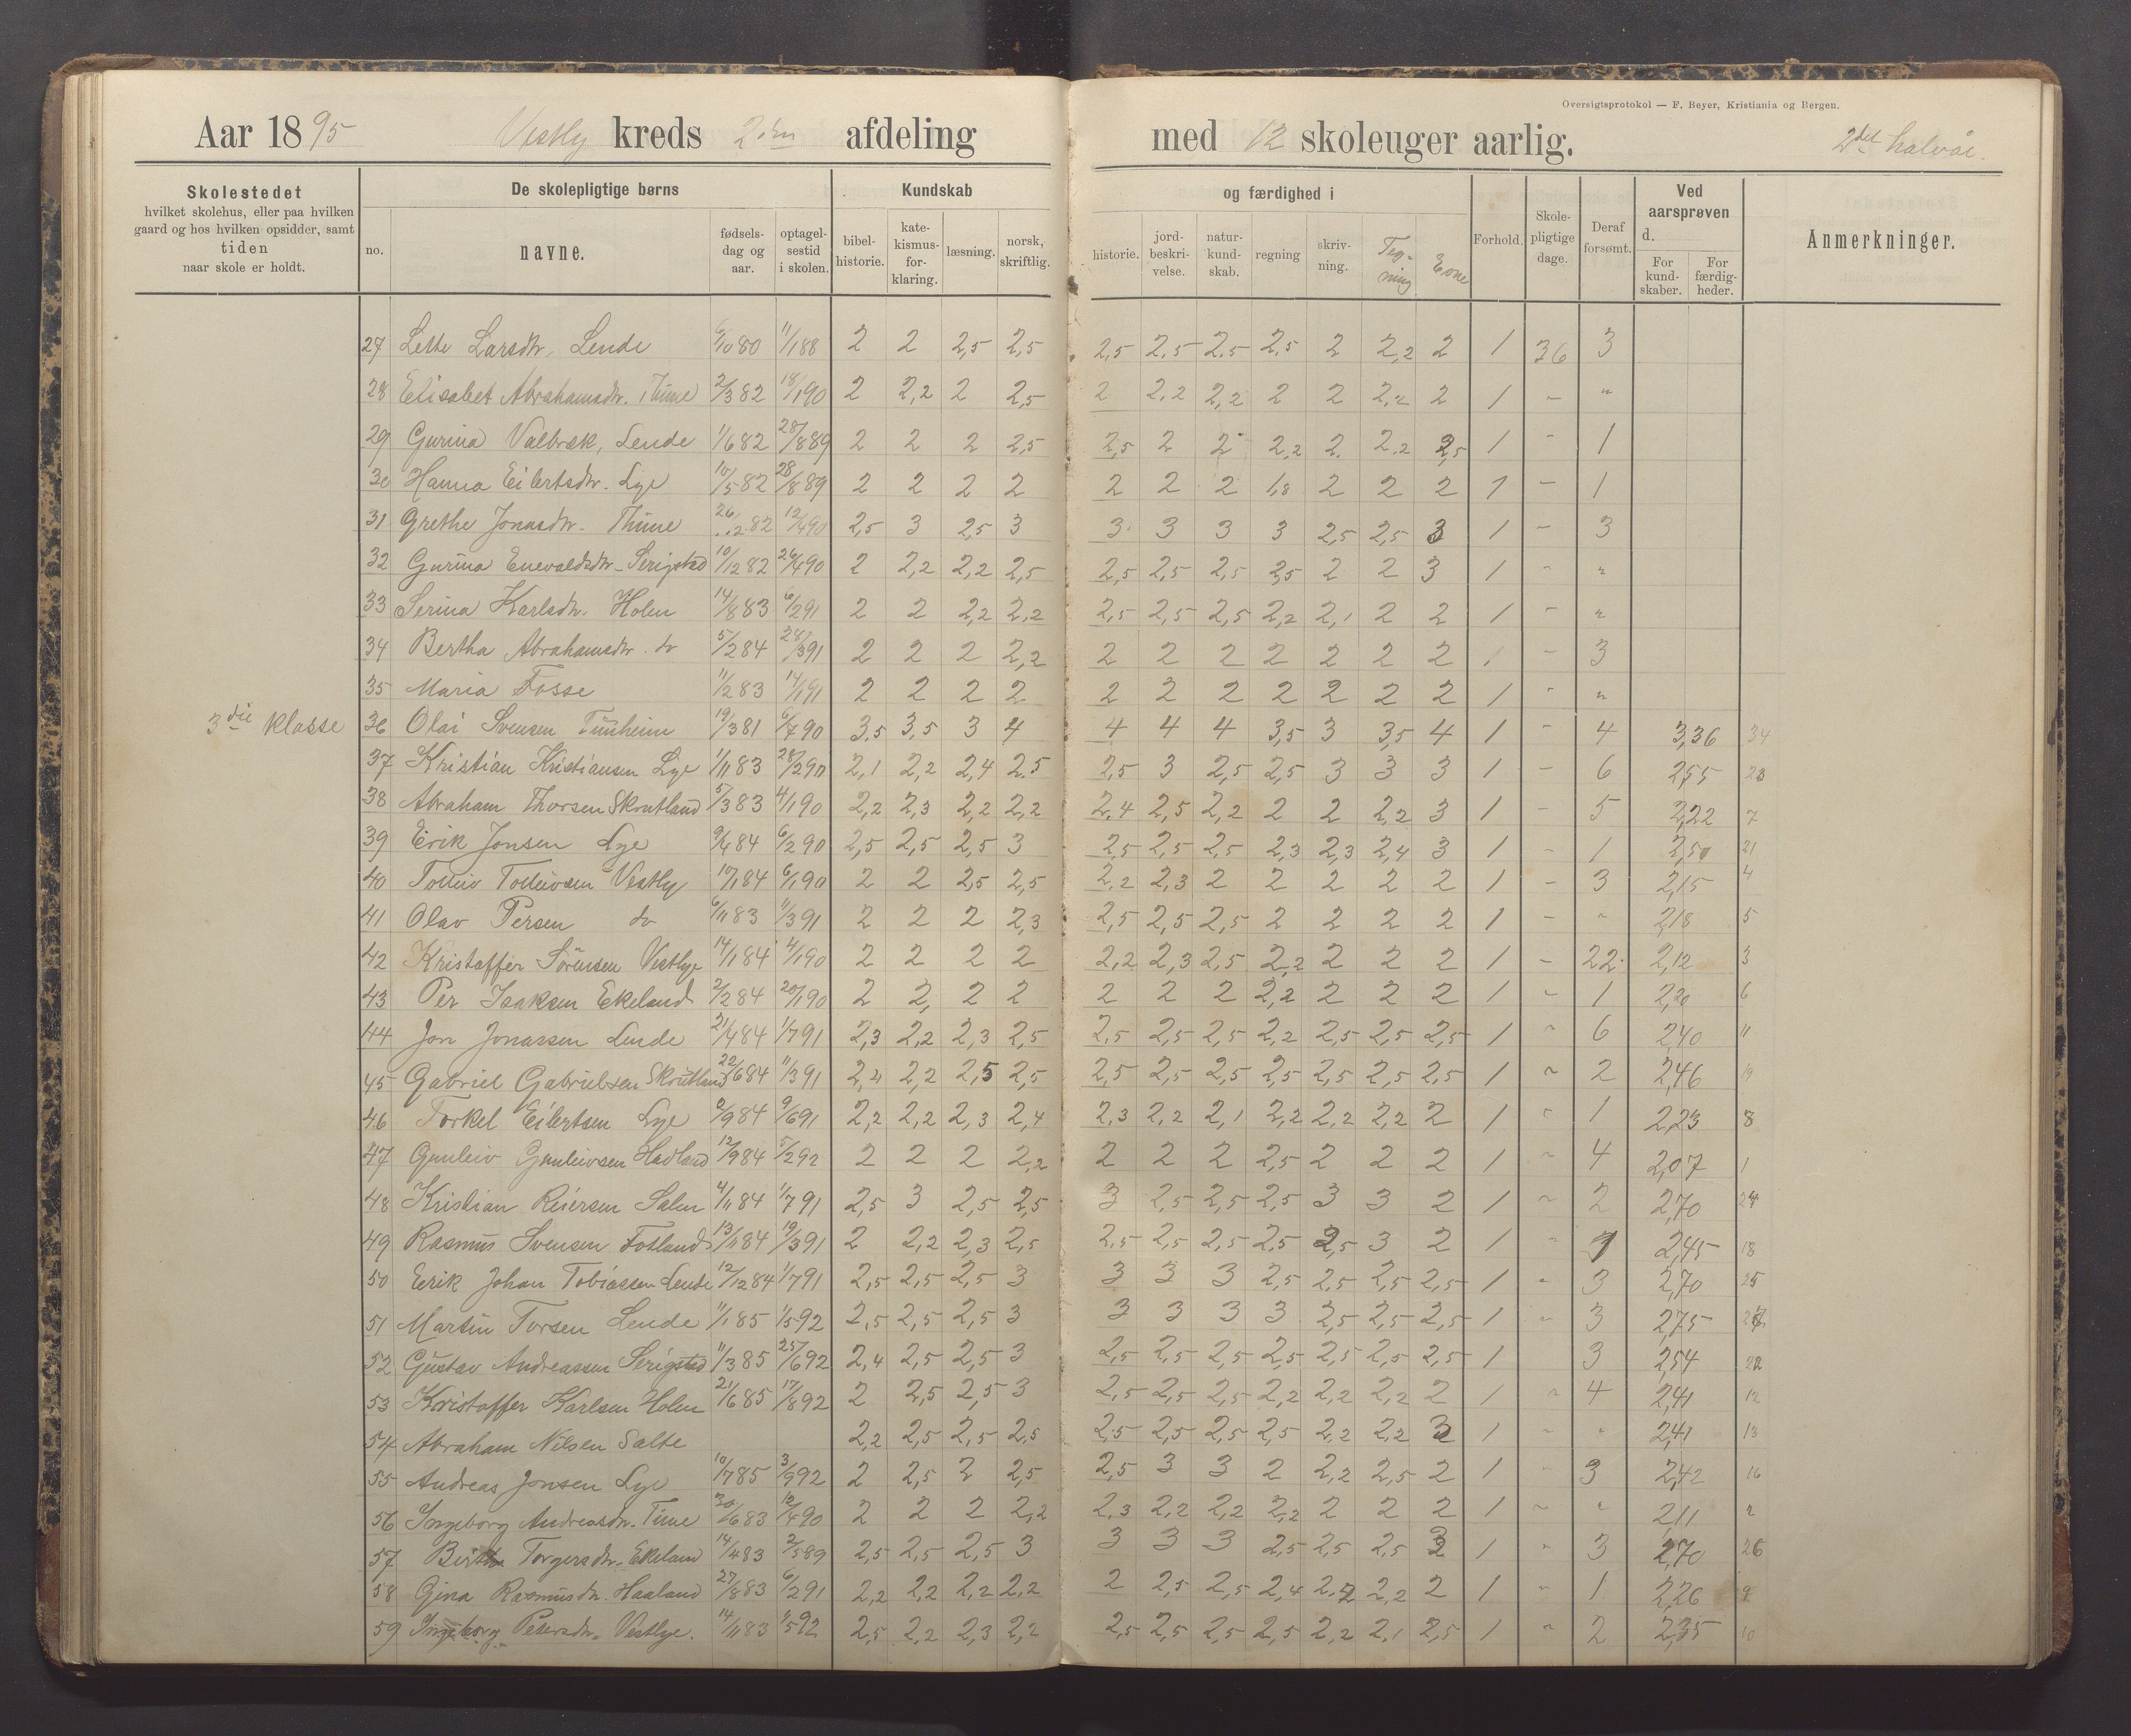 Oversigtsprotokol — F. Beyer, Kristiania og Bergen.
Aar 1895 Vestly kreds 2den afdeling med 12 skoleuger aarlig. 2det halvår.
Skolestedet
hvilket skolehus, eller paa hvilken
gaard og hos hvilken opsidder, samt
tiden
naar skole er holdt.
De skolepligtige børns
no.
navne.
fødsels-
dag og
aar.
optagel-
sestid
i skolen.
Kundskab
bibel-
historie.
kate-
kismus-
for-
klaring.
læsning.
norsk,
skriftlig.
og færdighed i
historie.
jord-
beskri-
velse.
natur-
kund-
skab.
regning
skriv-
ning.
Teg-
ning
Evne
Forhold.
Skole-
pligtige
dage.
Deraf
forsømt.
Ved
aarsprøven
d.
For
kund-
skaber.
For
færdig-
heder.
Anmerkninger.
27 Lette Larsdtr, Lende 6/10 80 11/1 88 2 2 2,5 2,5 2,5 2,5 2,5 2,5 2 2,2 2 1 36 3
28 Elisabet Abrahamsdtr. Time 2/3 82 18/1 90 2 2,2 2 2,5 2 2,2 2,2 2 2 2,2 2 1 - "
29 Gurina Valbræk, Lende 1/6 82 28/8 89 2 2 2 2,5 2,5 2 2 2,2 2 2,2 2,5 1 - 1
30 Hanna Eilertsdtr. Lye 10/5 82 28/8 89 2 2 2 2 2 2 2 1,8 2 2 2 1 - 1
31 Grethe Jonasdtr. Thime 26/2 82 12/4 90 2,5 3 2,5 3 3 3 3 3 2,5 2,5 3 1 - 3
32 Gurina Enevaldsdtr. Serigstad 10/12 82 26/4 90 2 2,2 2,2 2,5 2,5 2,5 2,5 2,5 2 2 3 1 - "
33 Serina Karlsdtr. Holen 14/8 83 6/2 91 2 2 2,2 2,2 2,5 2,5 2,5 2,2 2,1 2 2 1 - "
34 Bertha Abrahamsdtr. do 5/2 84 28/3 91 2 2 2 2,2 2 2 2 2 2 2 2 1 - 3
35 Maria Fosse 11/2 83 14/1 91 2 2 2 2 2 2 2 2 2 2 2 1 - "
3die klasse 36 Olai Svensen Tunheim 19/3 81 6/7 90 3,5 3,5 3 4 4 4 4 3,5 3 3,5 4 1 - 4 3,36 34
37 Kristian Kristiansen Lye 1/11 83 28/2 90 2,1 2,2 2,4 2,5 2,5 3 2,5 2,5 3 3 3 1 - 6 2,55 23
38 Abraham Thorsen Skrutland 5/3 83 4/1 90 2,2 2,3 2,2 2,2 2,4 2,5 2,2 2 2 2,2 3 1 - 5 2,22 7
39 Erik Jonsen Lye 9/4 84 6/2 90 2,5 2,5 2,5 3 2,5 2,5 2,5 2,3 2,3 2,4 3 1 - 1 2,50 21
40 Tolleiv Tolleivsen Vestly 10/1 84 6/1 90 2 2 2,5 2,5 2,2 2,3 2 2 2 2 2 1 - 3 2,15 4
41 Olav Persen do 6/11 83 11/3 91 2 2 2 2,3 2,5 2,5 2,5 2 2 2 2 1 - " 2,18 5
42 Kristoffer Sörensen Vestlye 14/1 84 4/1 90 2 2 2 2 2,2 2,3 2,5 2,2 2 2 2 1 - 22 2,12 3
43 Per Isaksen Ekeland 2/2 84 20/1 90 2 2 2 2 2 2 2 2,2 2 2 2 1 - 1 2,20 6
44 Jon Jonassen Lende 21/4 84 1/7 91 2,3 2,2 2,3 2,5 2,5 2,5 2,5 2,2 2,5 2,5 2,5 1 " 6 2,40 11
45 Gabriel Gabrielsen Skrutland 22/6 84 11/3 91 2,2 2,2 2,5 2,5 2,5 2,5 2,5 2,5 2,5 2,5 2,5 1 " 2 2,46 19
46 Torkel Eilertsen Lye 9/9 84 9/6 91 2,2 2,2 2,3 2,4 2,3 2,2 2,1 2,2 2,2 2,2 2 1 " 1 2,23 8
47 Gunleiv Gunleivsen Hadland 12/9 84 5/2 92 2 2 2 2,2 2 2 2 2,5 2 2 2 1 " 4 2,07 1
48 Kristian Reiersen Salen 4/11 84 1/7 91 2,5 3 2,5 2,5 3 2,5 2,5 2,5 3 3 2 1 " 2 2,70 24
49 Rasmus Svensen Fotland 13/11 84 19/3 91 2 2,2 2,3 2,5 2,5 2,5 2,5 2,5 2,5 3 2 1 " 1 2,45 18
50 Eerik Johan Tobiassen Lende 12/12 84 1/7 91 2,5 2,5 2,5 3 3 3 3 2,5 2,5 2,5 2,5 1 " 3 2,70 25
51 Martin Torsen Lende 11/1 85 1/5 92 2,5 2,5 2,5 3 3 3 3 3 2,5 2,5 2,5 1 " 3 2,75 27
52 Gustav Andreassen Serigstad 11/3 85 25/6 92 2,4 2,5 2,5 3 2,5 2,5 2,5 2,5 2,5 2,5 2,5 1 3 2,54 22
53 Kristoffer Karlsen Holen 21/6 85 17/8 92 2 2,5 2,5 3 2,5 2,5 2,5 2,2 2,2 2,2 2 1 " 4 2,41 12
54 Abraham Nilsen Salte 2,2 2,5 2,5 2,5 2,5 2,5 2,5 2,5 2,2 2,2 2 1 " " 2,41 13
55 Andreas Jonsen Lye 10/7 85 3/9 92 2 2,5 2 2,5 2,5 3 3 2 2,2 2,5 2 1 " 3 2,42 16
56 Ingeborg Andreasdtr. Time 20/6 83 12/4 90 2 2 2 2,2 2,3 2,2 2,2 2,2 2 2 2 1 " " 2,11 2
57 Berthe Torgersdtr. Ekeland 14/4 83 2/5 89 2,5 2,5 2,5 3 3 3 3 2,5 2,5 2,5 3 1 " 3 2,70 26
58 Gina Rasmusdtr. Haaland 27/8 83 6/2 91 2,2 2,2 2,2 2,2 2 2,5 2,5 2,4 2,2 2,2 2 1 " 1 2,26 9
59 Ingeborg Petersdtr. Vestlye. 14/11 83 1/5 92 2,5 2,2 2,3 2,2 2,5 2,5 2,5 2,5 2,2 2,1 2,5 1 " 2 2,35 10